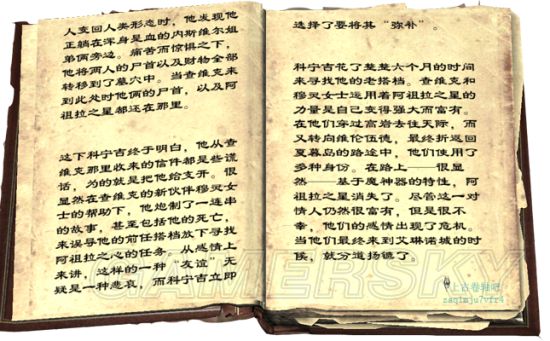 人变回人类形态时，他发现他
正躺在浑身是血的内斯维尔姐
弟俩旁边。痛苦而惊惧之下，
他将两人的尸首以及财物全部
转移到了墓穴中。当查维克来
到此处时他俩的尸首，以及阿
祖拉之星都还在那里。
这下科宁吉终于明白，他从查
维克那里收来的信件都是些谎
话，为的就是把他给支开。很
显然在查维克的新伙伴穆灵女
士的帮助下，他炮制了一连串
的故事，甚至包括他的死亡，
来误导他的前任搭档放下寻找
阿祖拉之心的任务。从感情上
来讲，这样的一种“友谊”无
疑是一种悲哀，而科宁吉立即
选择了要将其“弥补”。
科宁吉花了整整六个月的时间
来寻找他的老搭档。查维克和
穆灵女士运用着阿祖拉之星的
力量是自己变得强大而富有。
在他们穿过高岩去往天际，而
又转向维伦伍德，最终折返回
夏暮岛的路途中，他们使用了
多种身份。在路上——很显
然——基于魔神器的特性，阿
祖拉之星消失了。尽管这一对
情人仍然很富有，但是很不
幸，他们的感情出现了危机。
当他们最终来到艾琳诺城的时
候，就分道扬镳了。
GAMERSKY
上古卷轴吧
zaqimju7vfr4